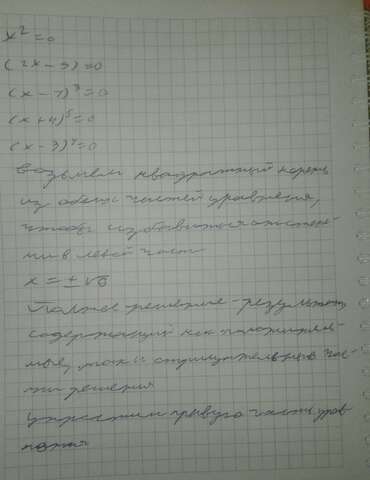 x² = 0
(2x - 5) = 0
(x - 7)³ = 0
(x + 4)⁵ = 0
(x - 3)⁷ = 0
Возьмем квадратный корень
из обеих частей уравнения,
чтобы избавиться от степе-
ни в левой части
x = ± √0
Полное решение - результат,
содержащий как положитель-
ные, так и отрицательные час-
ти решения
Упростим правую часть урав-
нения